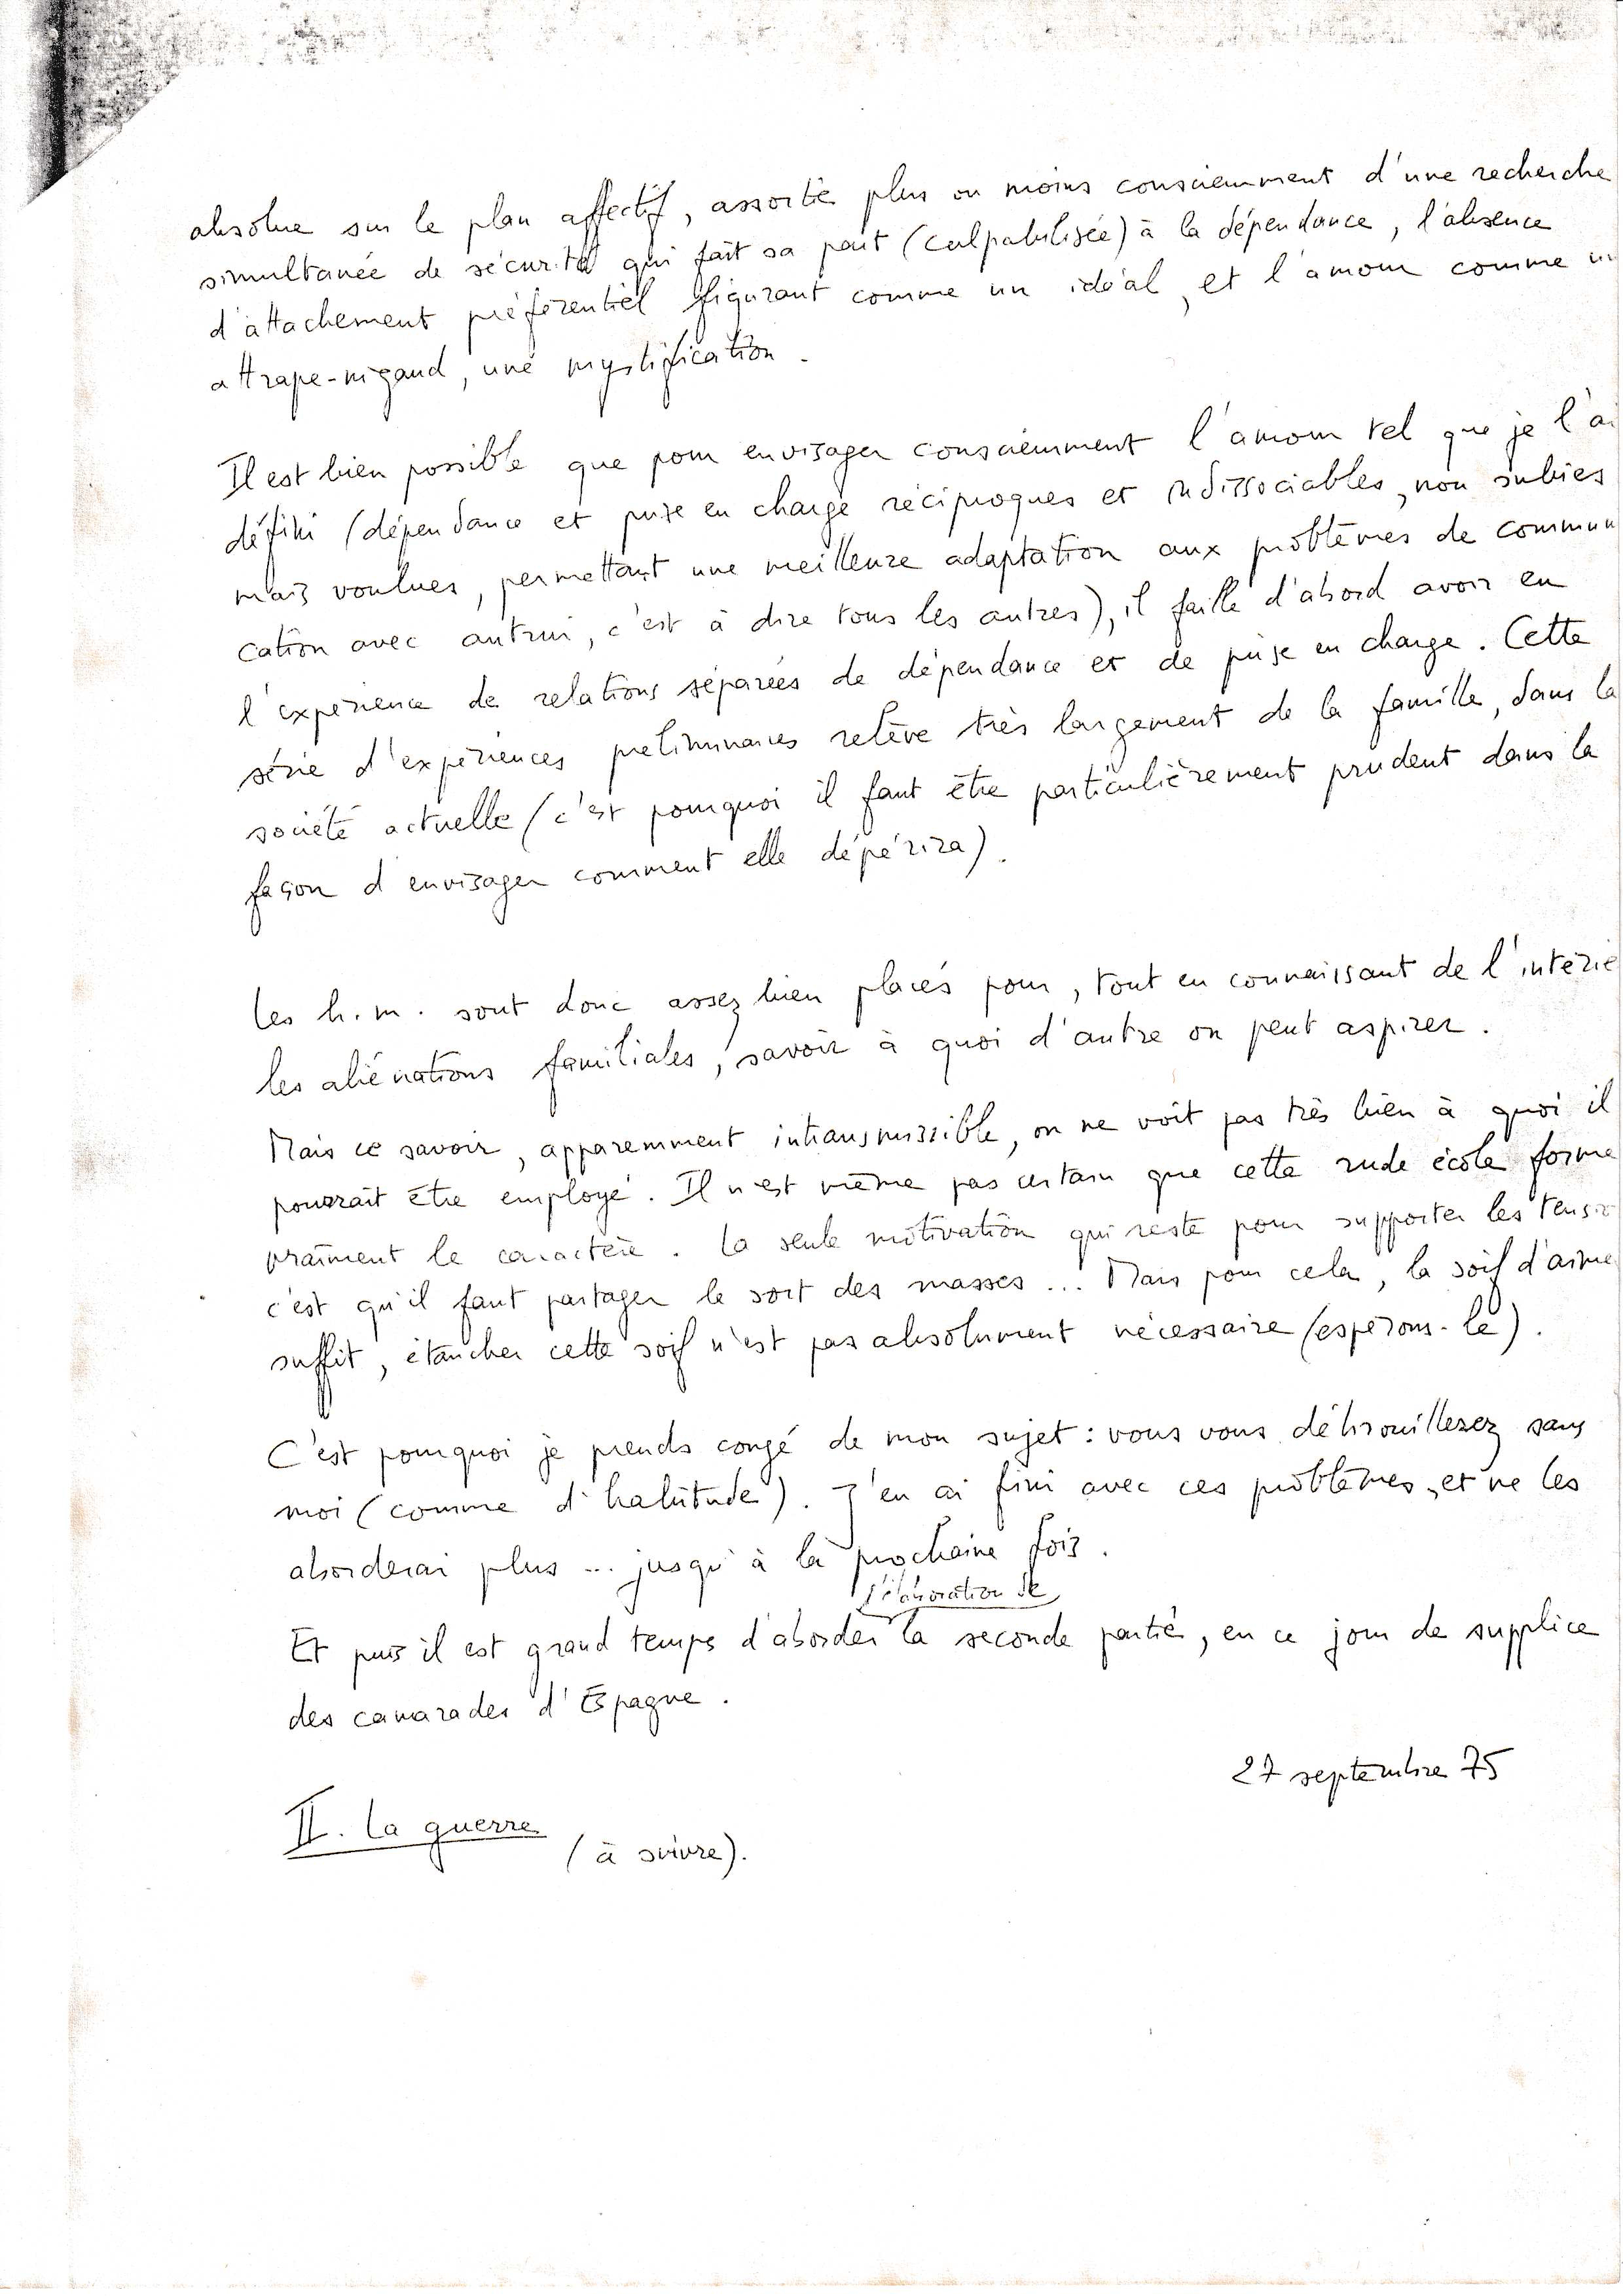 absolue sur le plan affectif, assortie plus ou moins consciemment d'une recherche
simultanée de sécurité qui fait sa part (culpabilisée) à la dépendance, l'absence
d'attachement préférentiel figurant comme un idéal, et l'amour comme un
attrape-nigaud, une mystification.
Il est bien possible que pour envisager consciemment l'amour tel que je l'ai
défini (dépendance et prise en charge réciproques et indissociables, non subies
mais voulues, permettant une meilleure adaptation aux problèmes de commun
cation avec autrui, c'est à dire tous les autres), il faille d'abord avoir eu
l'expérience de relations séparées de dépendance et de prise en charge. Cette
série d'expériences préliminaires relève très largement de la famille, dans la
société actuelle (c'est pourquoi il faut être particulièrement prudent dans la
façon d'envisager comment elle dépérira).
Les h.m. sont donc assez bien placés pour, tout en connaissant de l'intérie
les aliénations familiales, savoir à quoi d'autre on peut aspirer.
Mais ce savoir, apparemment intransmissible, on ne voit pas très bien à quoi il
pourrait être employé. Il n'est même pas certain que cette rude école forme
vraiment le caractère. La seule motivation qui reste pour supporter les tensio
c'est qu'il faut partager le sort des masses... Mais pour cela, la soif d'aime
suffit, étancher cette soif n'est pas absolument nécessaire (espérons-le).
C'est pourquoi je prends congé de mon sujet : vous vous débrouillerez sans
moi (comme d'habitude). J'en ai fini avec ces problèmes, et ne les
aborderai plus ... jusqu'à la prochaine fois.
l'élaboration de
Et puis il est grand temps d'aborder la seconde partie, en ce jour de supplice
des camarades d'Espagne.
27 septembre 75
II. La guerre
(à suivre).